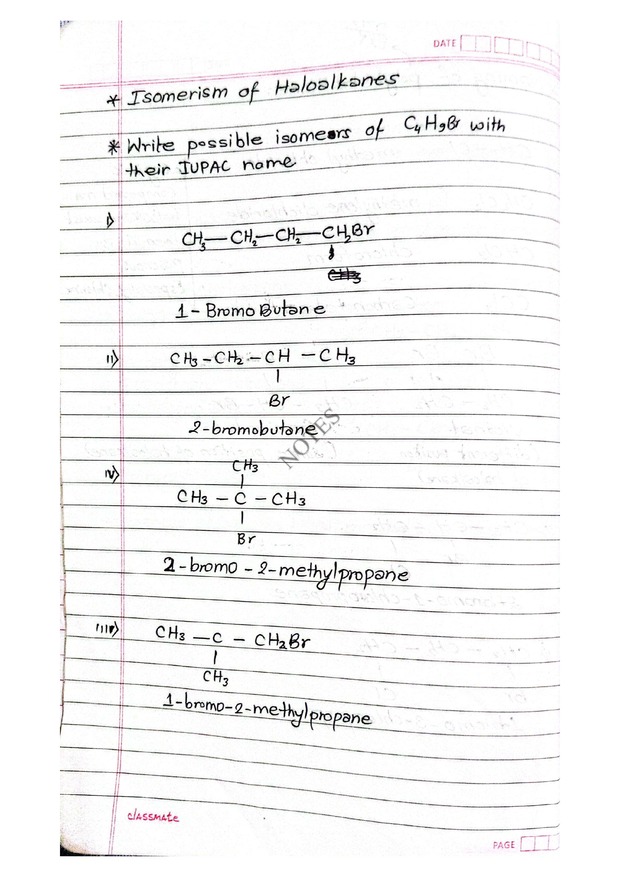 DATE
* Isomerism of Haloalkanes
* Write possible isomers of C₄H₉Br with
their IUPAC name
i)
CH₃—CH₂—CH₂—CH₂Br
CH₃
1-Bromo Butane
ii) CH₃-CH₂-CH-CH₃
|
Br
2-bromobutane
NOTES
CH₃
|
iv) CH₃-C-CH₃
|
Br
2-bromo-2-methylpropane
iiii) CH₃-C-CH₂Br
|
CH₃
1-bromo-2-methylpropane
classmate
PAGE